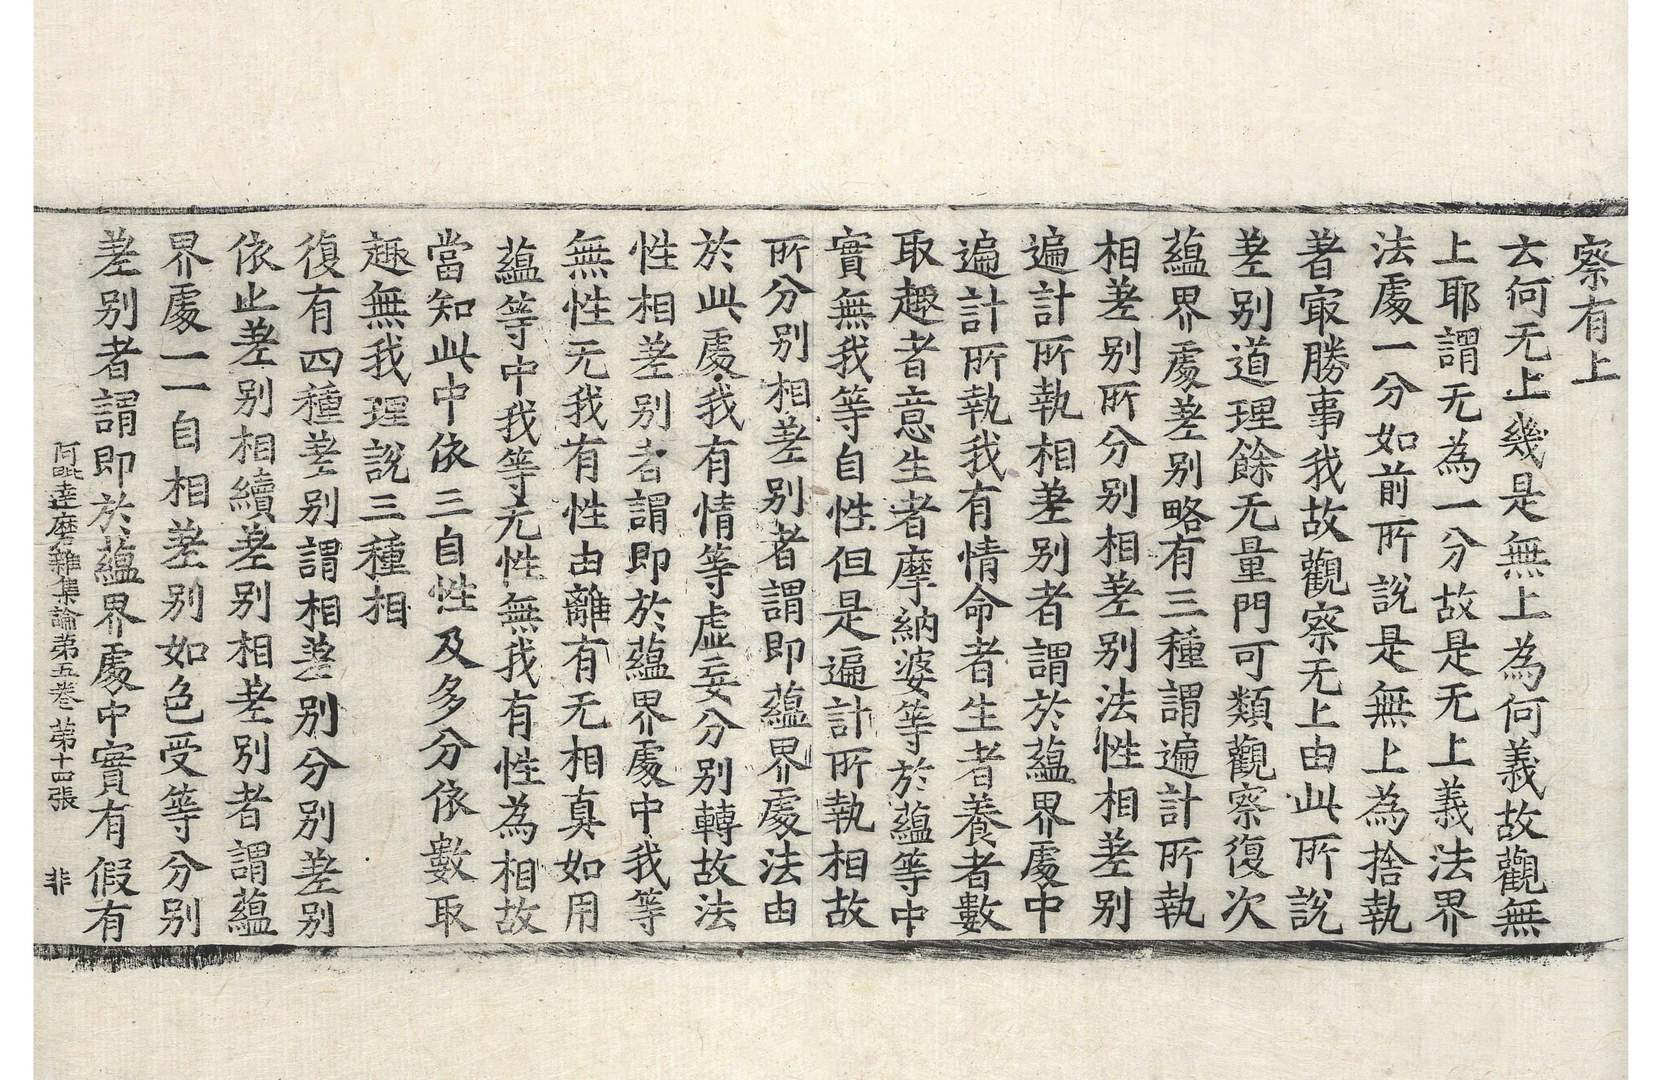 察有上
云何无上幾是無上為何義故觀無
上耶謂无為一分故是无上義法界
法處一分如前所說是無上為捨執
著㝡勝事我故觀察无上由此所說
差別道理餘无量門可類觀察復次
蘊界處差別略有三種謂遍計所執
相差別所分別相差別法性相差別
遍計所執相差別者謂於蘊界處中
遍計所執我有情命者生者養者數
取趣者意生者摩納婆等於蘊等中
實無我等自性但是遍計所執相故
所分別相差別者謂即蘊界處法由
於此處我有情等虛妄分別轉故法
性相差別者謂即於蘊界處中我等
無性无我有性由離有无相真如用
蘊等中我等无性無我有性為相故
當知此中依三自性及多分依數取
趣無我理說三種相
復有四種差別謂相差別分別差別
依止差別相續差別相差別者謂蘊
界處一一自相差別如色受等分別
差別者謂即於蘊界處中實有假有
阿毗達磨雜集論第五卷 第十四張 非